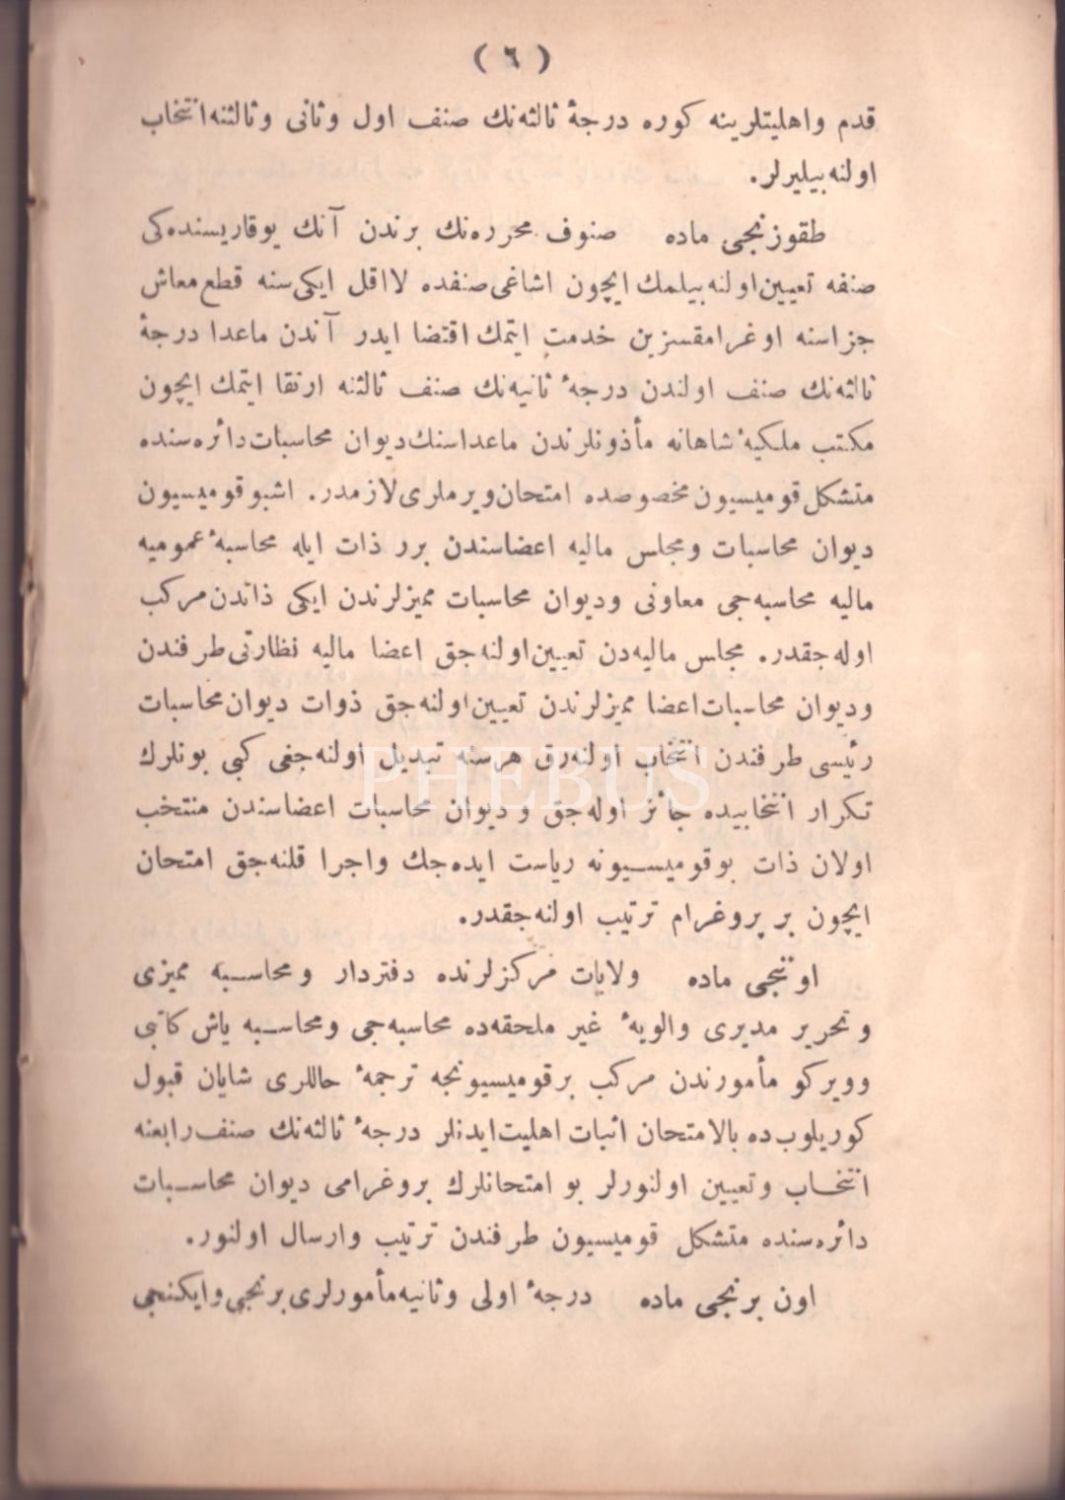 ( ٦ )
قدم واهليتلرينه كوره درجۀ ثالثه‌نك صنف اول وثانى وثالثنه انتخاب
اولنه بيليرلر.
طقوزنجى ماده صنوف محرره‌نك برندن آنك يوقاريسنده‌كى
صنفه تعيين اولنه بيلمك ايچون اشاغى صنفده لااقل ايكى سنه قطع معاش
جزاسنه اوغرامقسزين خدمت ايتمك اقتضا ايدر آندن ماعدا درجۀ
ثالثه‌نك صنف اولندن درجۀ ثانيه‌نك صنف ثالثنه ارتقا ايتمك ايچون
مكتب ملكيۀ شاهانه مأذونلرندن ماعداسنك ديوان محاسبات دائره‌سنده
متشكل قوميسيون مخصوصده امتحان ويرملرى لازمدر. اشبو قوميسيون
ديوان محاسبات ومجلس ماليه اعضاسندن برر ذات ايله محاسبۀ عموميه
ماليه محاسبه‌جى معاونى وديوان محاسبات مميزلرندن ايكى ذاتدن مركب
اوله‌جقدر. مجلس ماليه‌دن تعيين اولنه‌جق اعضا ماليه نظارتى طرفندن
وديوان محاسبات اعضا مميزلرندن تعيين اولنه‌جق ذوات ديوان محاسبات
رئيسى طرفندن انتخاب اولنه‌رق هرسنه تبديل اولنه‌جغى كبى بونلرك
تكرار انتخابيده جائز اوله‌جق وديوان محاسبات اعضاسندن منتخب
اولان ذات بوقوميسيونه رياست ايده‌جك واجرا قلنه‌جق امتحان
ايچون بر پروغرام ترتيب اولنه‌جقدر.
اوننجى ماده ولايات مركزلرنده دفتردار ومحاسبه مميزى
وتحرير مديرى والويۀ غير ملحقه‌ده محاسبه‌جى ومحاسبه باش كاتبى
وويركو مأمورندن مركب برقوميسيونجه ترجمۀ حاللرى شايان قبول
كوريلوب‌ده بالامتحان اثبات اهليت ايدنلر درجۀ ثالثه‌نك صنف رابعنه
انتخاب وتعيين اولنورلر بو امتحانلرك پروغرامى ديوان محاسبات
دائره‌سنده متشكل قوميسيون طرفندن ترتيب وارسال اولنور.
اون برنجى ماده درجۀ اولى وثانيه مأمورلرى برنجى وايكنجى
PHEBUS